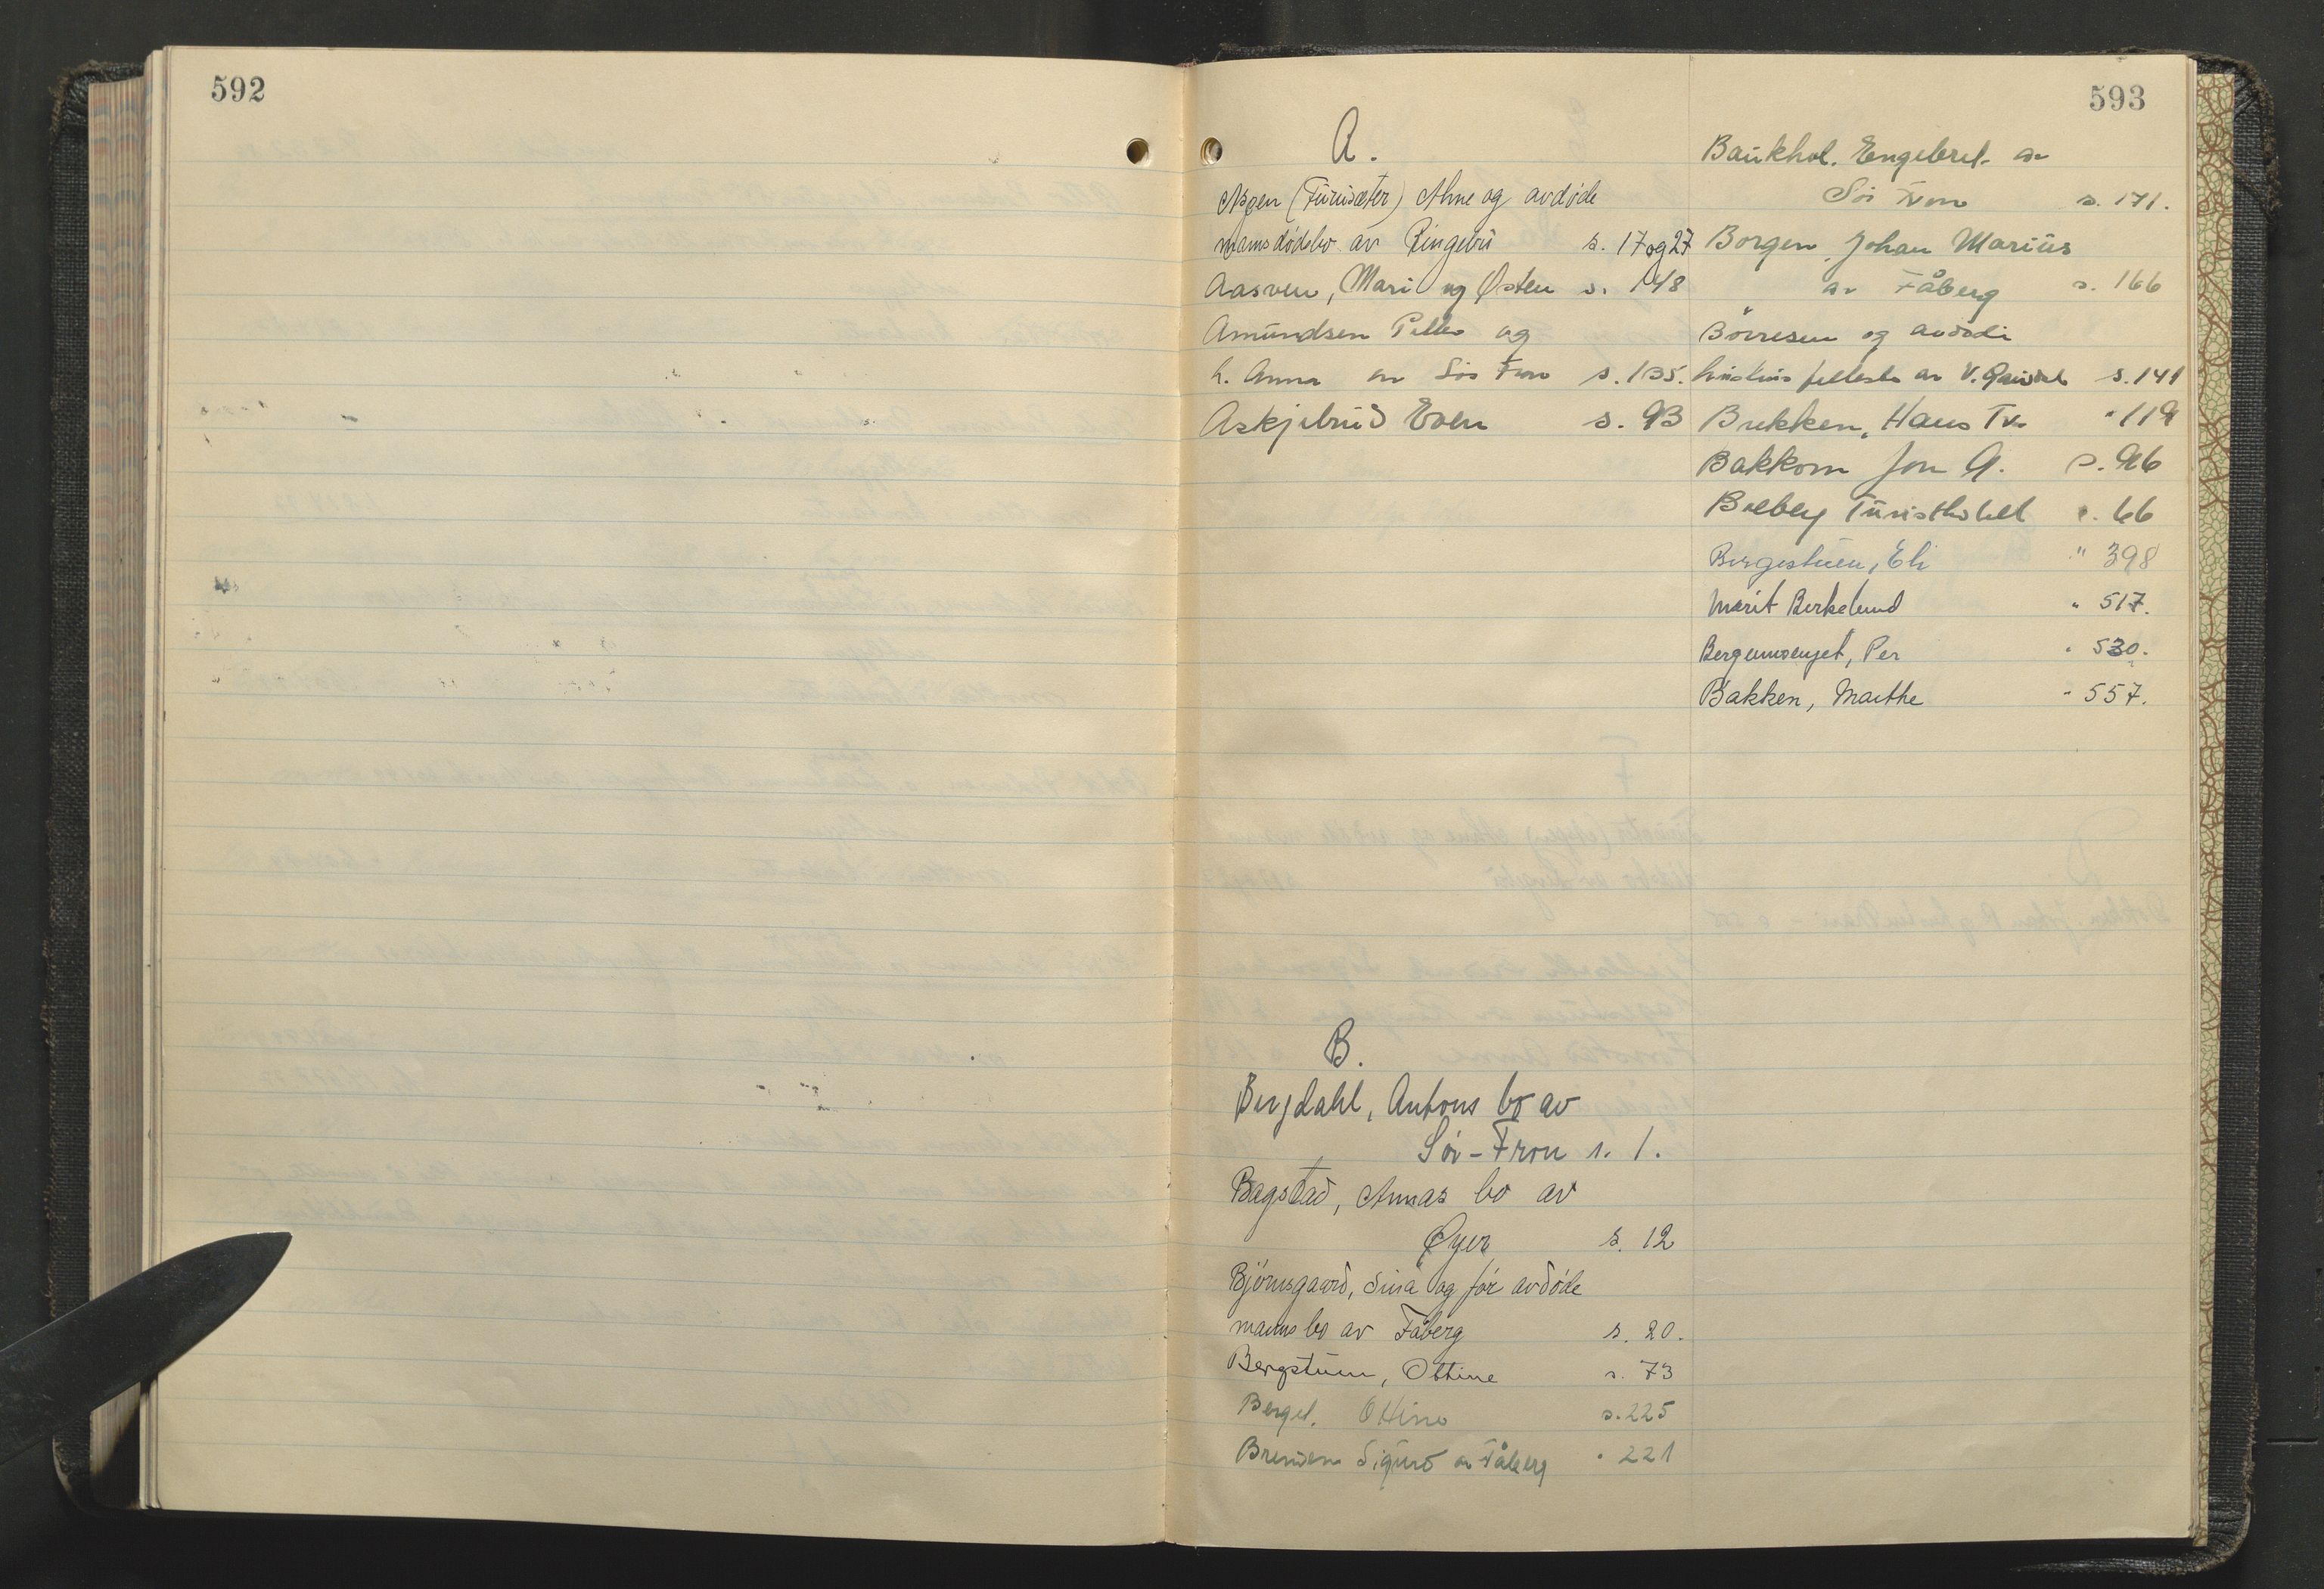 592
593
A.
Aspen (Furusæter) Ane og avdøde
manns dødsbo av Ringebu s. 17 og 27
Aasveen, Mari og Østen s. 148
Amundsen Pelle og
h. Anna av Sør Fron s. 135.
Askjelrud Even s. 93
B.
Bergdahl, Antons bo av
Sør-Fron s. 1.
Bagstad, Annas bo av
Øyer s. 12
Bjørnsgaard, Sina og før avdøde
manns bo av Fåberg s. 20.
Bergstuen, Ottine s. 73
Berget, Ottine s. 225
Brenden Sigurd av Fåberg " 221
Baukhol. Engebret av
Sør Fron s. 171.
Borgen, Johan Marius
av Fåberg s. 166
Børresen og avdøde
hustrus fellesbo av V. Gausdal s. 141
Brekken, Hans Tv. " 119
Bakkom Jon G. s. 96
Bølbey Turisthotell s. 66
Bergestuen, Eli " 398
Marit Berkelund " 517.
Bergumsenget, Per " 530.
Bakken, Marthe " 557.